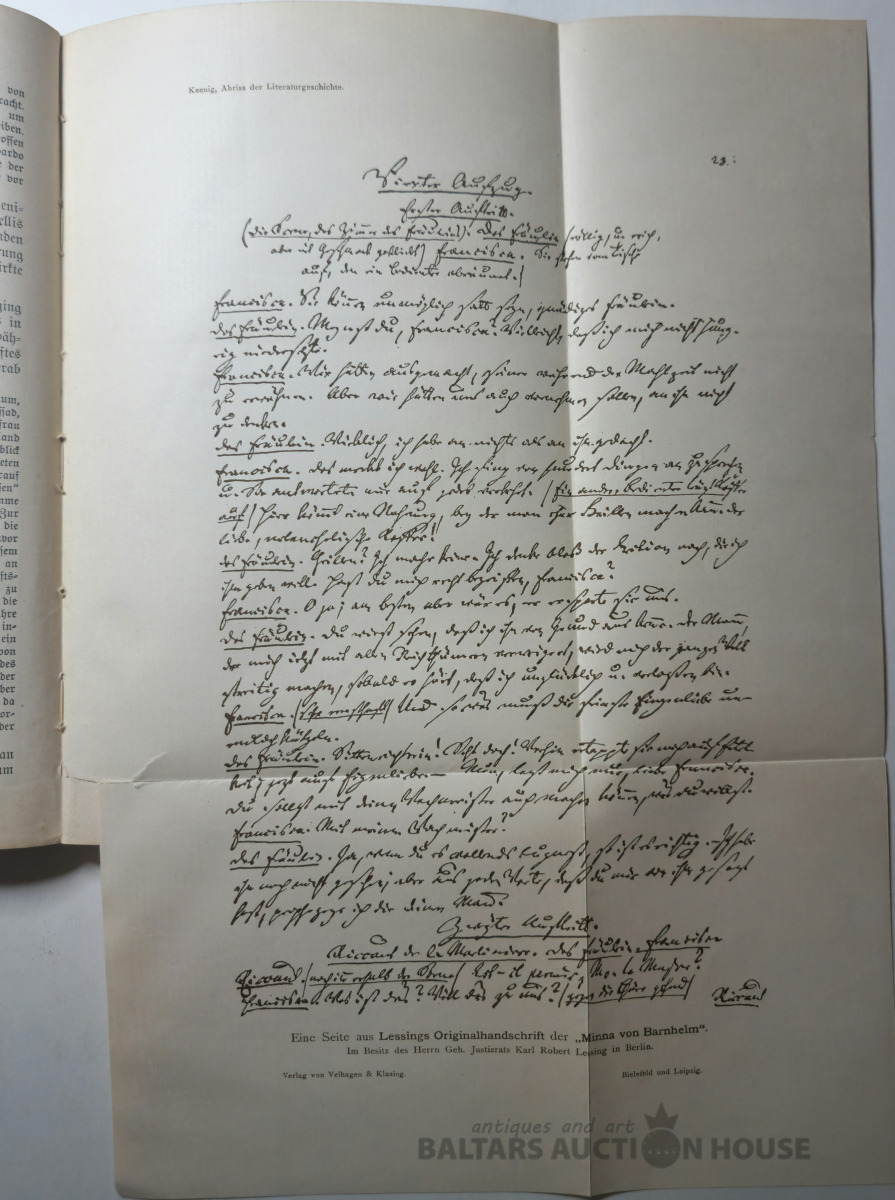 von
racht.
um
iben.
offen
ardo
e der
vor
eni-
ellis
nden
rung
irkte
ging
s in
väh-
ftes
rab
tum,
sad,
frau
and
blick
eten
rauf
sen"
hme
Zur
die
vor
sem
an
fts-
zu
die
hre
in-
ein
von
des
der
ber
da
vor-
der
an
um
Koenig, Abriss der Literaturgeschichte.
23.
Vierter Aufzug.
Erster Auftritt.
(die Scene, das Zimmer des Fräuleins). Das Fräulein (völlig, und reich,
aber mit Geschmack gekleidet) Francisca. Sie stehen vom Tische
auf, den ein Bedienter abräumet.)
Francisca. Sie können unmöglich satt seyn, gnädiges Fräulein.
das Fräulein. Meynst du, Francisca? Vielleicht, daß ich mich nicht hung-
rig niedersetzte.
Francisca. Wir hatten ausgemacht, seiner während der Mahlzeit nicht
zu erwähnen. Aber wir hätten uns auch vornehmen sollen, an ihn nicht
zu denken.
das Fräulein. Wirklich, ich habe an nichts als an ihn gedacht.
Francisca. Das merkte ich wohl. Ich fing von hundert Dingen an zu sprechen
u. Sie antworteten mir auf jedes verkehrt. (Ein andrer Bedienter trägt Kaffee
auf) Hier kömmt eine Nahrung, bey der man eher Grillen machen kann der
liebe, melancholische Kaffee!
das Fräulein. Grillen? Ich mache keine. Ich denke bloß der Lektion nach, die ich
ihm geben will. Hast du mich recht begriffen, Francisca?
Francisca. O ja; am besten aber wär es, er ersparte sie uns.
das Fräulein. Du wirst sehen, daß ich ihn von Grund aus kenne. Der Mann,
der mich jetzt mit allen Reichthümern verweigert, wird mich der ganzen Welt
streitig machen, sobald er hört, daß ich unglücklich u. verlassen bin.
Francisca. (sehr ernsthaft) Und so was muß die feinste Eigenliebe un-
endlich kützeln.
das Fräulein. Sittenrichterin! Seht doch! Vorhin ertappte sie mich auf Eitel-
keit; jetzt auf Eigenliebe. — Nun, laß mich nur, liebe Francisca.
Du sollst mit deinem Wachmeister auch machen können, was du willst.
Francisca. Mit meinem Wachmeister?
das Fräulein. Ja, wenn du es vollends leugnest, so ist es richtig. Ich habe
ihn noch nicht gesehen; aber aus jedem Worte, daß du mir von ihm gesagt
hast, prophezeye ich dir deinen Mann.
Zweyter Auftritt.
Riccaut de la Marliniere. Das Fräulein. Francisca
Riccaut. (noch innerhalb der Scene) Est-il permis, Mr. le Major?
Francisca. Was ist das? Will das zu uns? (gegen die Thüre gehend)
Riccaut
Eine Seite aus Lessings Originalhandschrift der „Minna von Barnhelm“.
Im Besitz des Herrn Geh. Justizrats Karl Robert Lessing in Berlin.
Verlag von Velhagen & Klasing. Bielefeld und Leipzig.
antiques and art
BALTARS AUCTION HOUSE